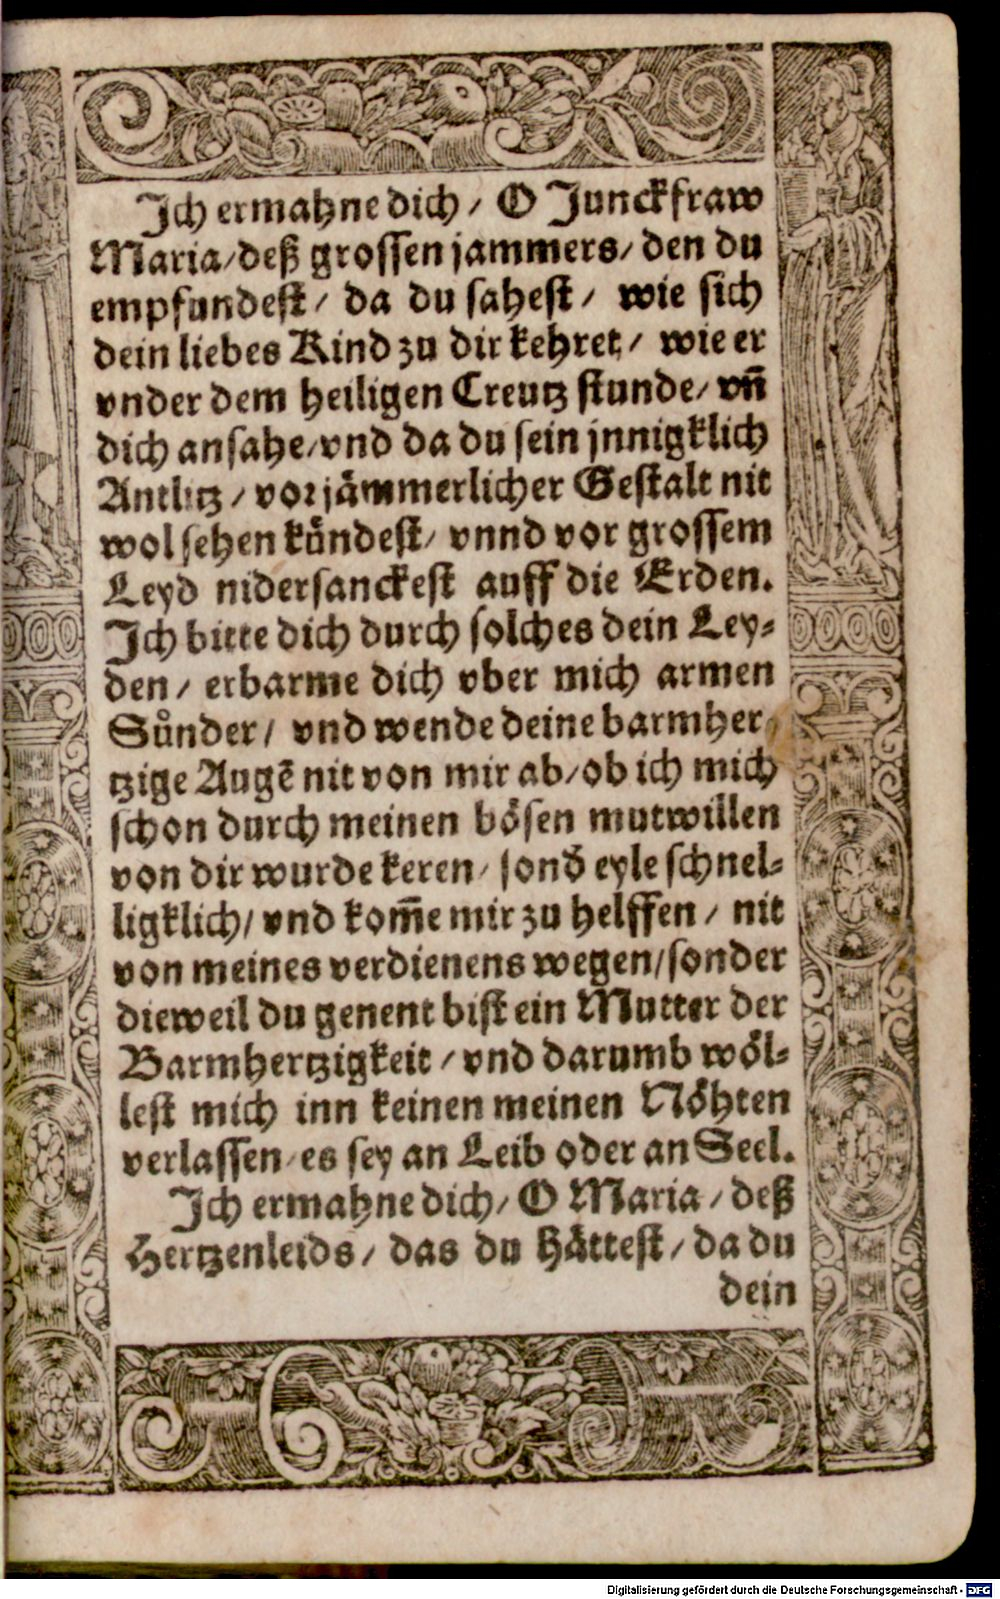 Ich ermahne dich / O Junckfraw
Maria / deß grossen jammers / den du
empfundest / da du sahest / wie sich
dein liebes Kind zu dir kehret / wie er
vnder dem heiligen Creutz stunde / vñ
dich ansahe / vnd da du sein jnnigklich
Antlitz / vor jämmerlicher Gestalt nit
wol sehen kůndest / vnnd vor grossem
Leyd nidersanckest auff die Erden.
Ich bitte dich durch solches dein Ley-
den / erbarme dich vber mich armen
Sůnder / vnd wende deine barmher-
tzige Augẽ nit von mir ab / ob ich mich
schon durch meinen bösen mutwillen
von dir wurde keren / sonď eyle schnel-
ligklich / vnd kom̃e mir zu helffen / nit
von meines verdienens wegen / sonder
dieweil du genent bist ein Mutter der
Barmhertzigkeit / vnd darumb wöl-
lest mich inn keinen meinen Nöhten
verlassen / es sey an Leib oder an Seel.
Ich ermahne dich / O Maria / deß
Hertzenleids / das du håttest / da du
dein
Digitalisierung gefördert durch die Deutsche Forschungsgemeinschaft - DFG